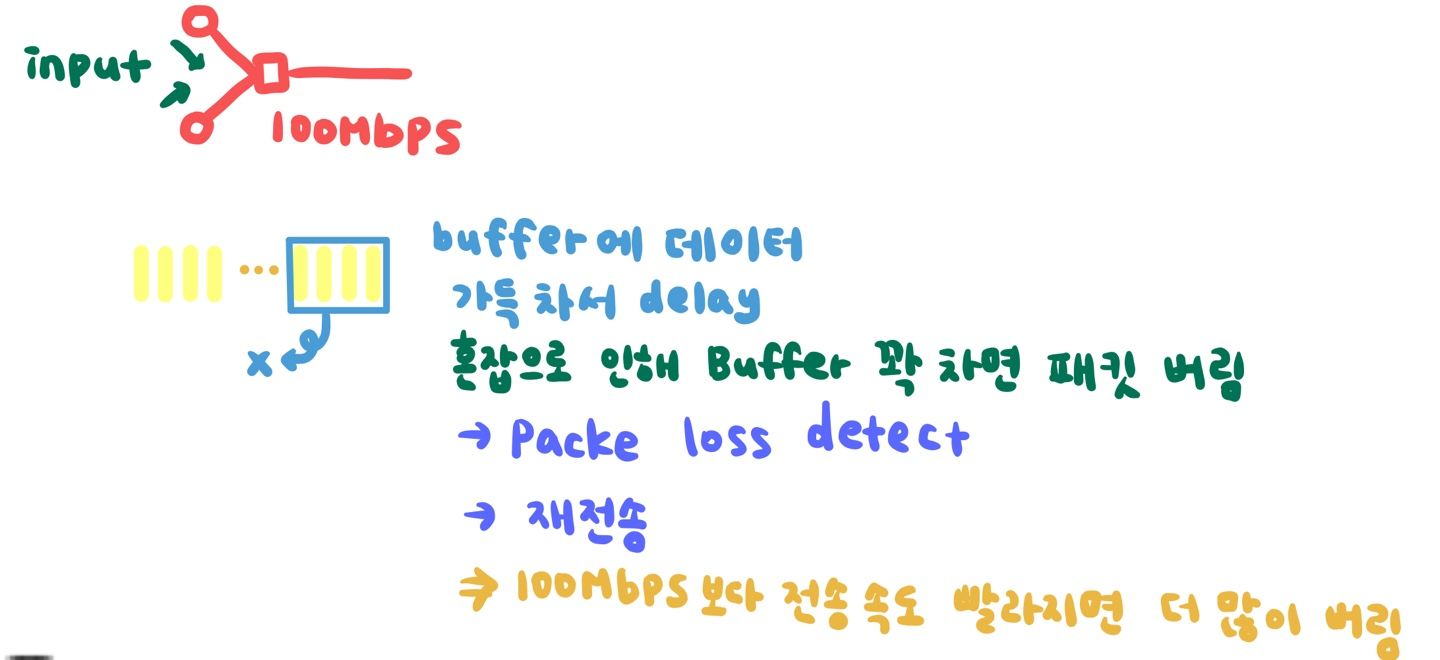 input
100Mbps
buffer에 데이터
가득 차서 delay
x
혼잡으로 인해 Buffer 꽉 차면 패킷 버림
→ Packe loss detect
→ 재전송
⇒ 100Mbps보다 전송 속도 빨라지면 더 많이 버림